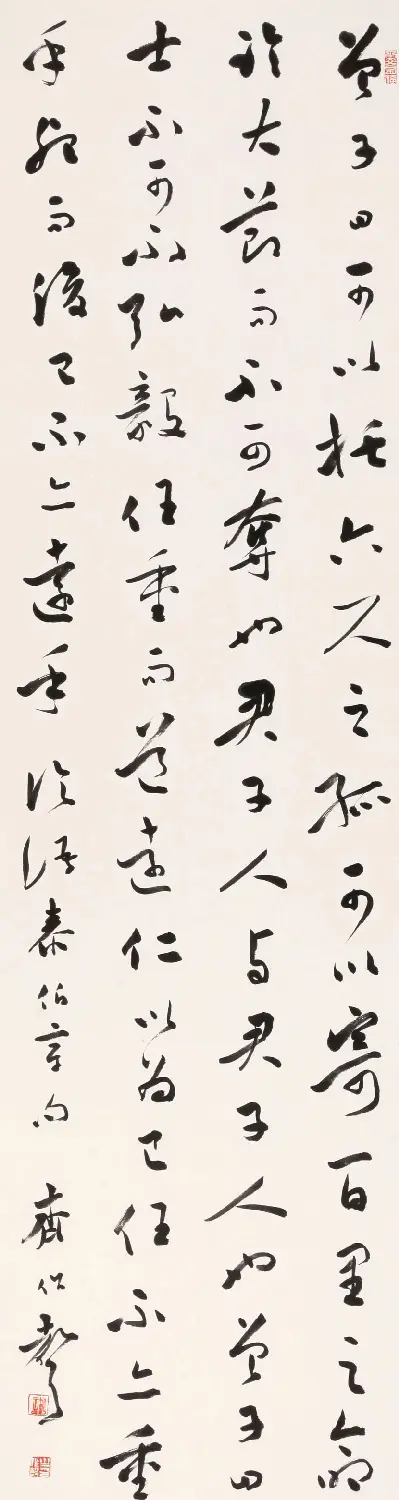 曾子曰可以托六尺之孤可以寄百里之命
临大节而不可奪也君子人与君子人也曾子曰
士不可不弘毅任重而道遠仁以为己任不亦重
乎死而後已不亦遠乎 论语泰伯章句 齊作